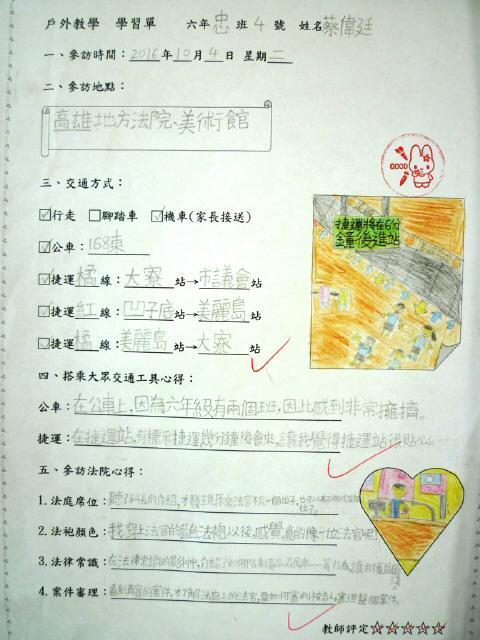 戶外教學 學習單 六年忠班4號 姓名蔡偉廷
一、參訪時間：2016年10月4日 星期二
二、參訪地點：
高雄地方法院、美術行館
GOOD
三、交通方式：
☑行走 □腳踏車 ☑機車(家長接送)
☑公車：168東
捷運將在6分
鐘後進站
☑捷運橘線：大寮站→市議會站
☑捷運紅線：凹子底站→美麗島站
☑捷運橘線：美麗島站→大寮站
四、搭乘大眾交通工具心得：
公車：在公車上,因為六年級有兩個班,因此感到非常擁擠。
捷運：在捷運站,有標示捷運幾分鐘後會來,讓我覺得捷運站很貼心
五、參訪法院心得：
1.法庭席位：聽了科長的介紹,才發現原來法官不只一個位子,
2.法袍顏色：我穿上法官的藍色法袍以後,感覺真的像一位法官呢!
3.法律常識：在法律常識的影片中,介紹了如何防制
4.案件審理：看到酒駕的案件,才了解法庭上的法官,要如何審判被告,審理整個案件。
教師評定☆☆☆☆☆